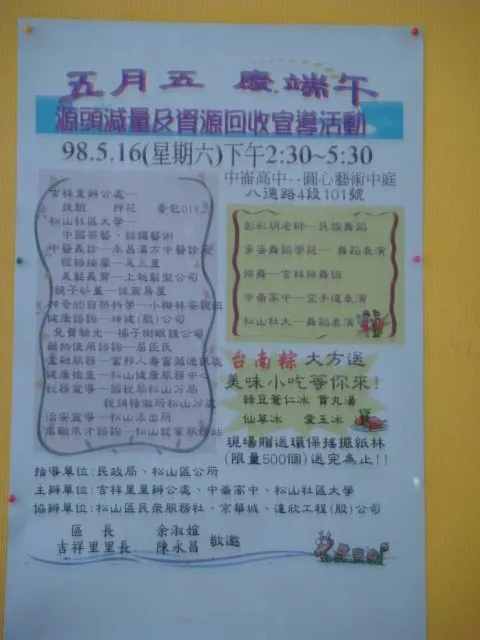 五月五 慶端午
源頭減量及資源回收宣導活動
98.5.16(星期六)下午2:30~5:30
中崙高中--圓心藝術中庭
八德路4段101號
吉祥里辦公處—
押花 香包DIY
松山社區大學—
中醫義診—永昌漢方中醫診所
經絡按摩—足三重
親子彩畫—信義房屋
神奇的自然科學—小樹林安親班
健康檢查—松山健康服務中心
稅務宣導—國稅局松山分局
稅捐稽徵所松山分處
治安宣導—松山派出所
求職求才諮詢—松山就業服務站
彭彩明老師—民族舞蹈
多姿舞蹈學苑—舞蹈表演
排舞—吉祥排舞班
中崙高中—空手道表演
松山社大—舞蹈表演
台南粽 大方送
美味小吃等你來!
綠豆薏仁冰 貢丸湯
仙草冰 愛玉冰
現場贈送環保搖擺紙杯
(限量500個)送完為止!!
指導單位:民政局、松山區公所
主辦單位:吉祥里里辦公處、中崙高中、松山社區大學
協辦單位:松山區民眾服務社、京華城、達欣工程(股)公司
區長 余淑媗
吉祥里里長 陳永昌 敬邀